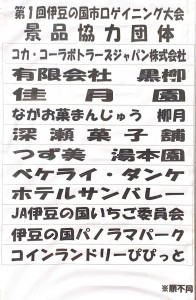 第1回伊豆の国市ロゲイニング大会
景品協力団体
コカ・コーラボトラーズジャパン株式会社
有限会社 黒柳
佳月園
ながお菓まんじゅう 柳月
深瀬菓子舗
つず美 湯本園
ベケライ・ダンケ
ホテルサンバレー
JA伊豆の国いちご委員会
伊豆の国パノラマパーク
コインランドリーぴぴっと
※順不同